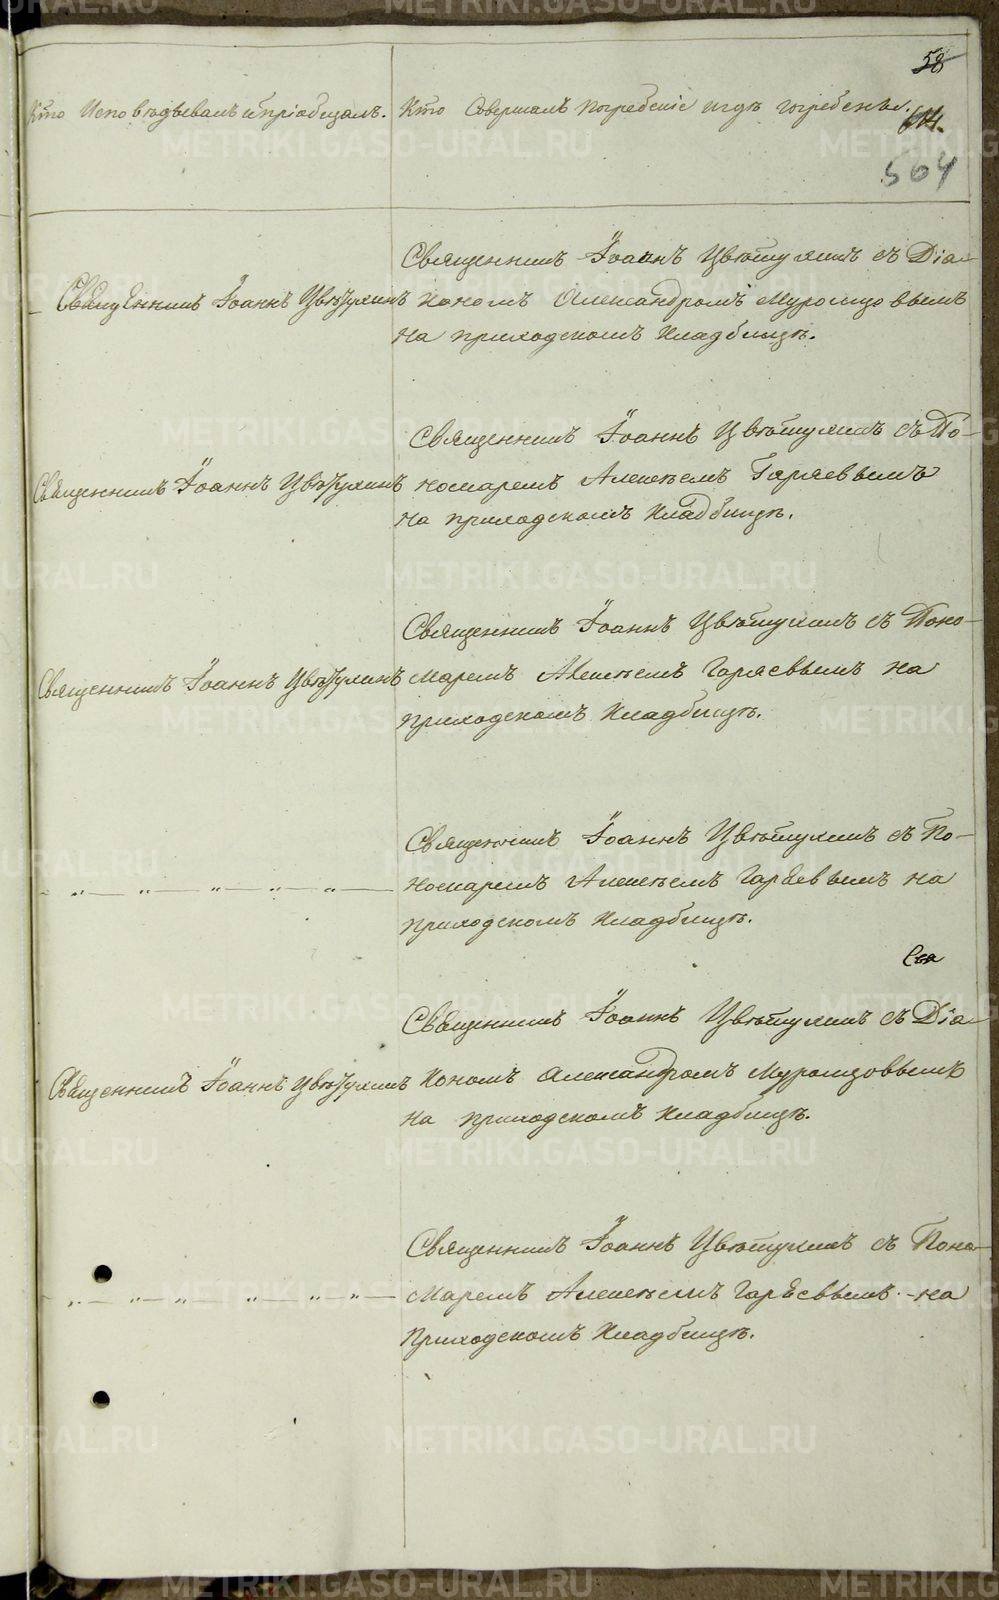 58
614.
564
Кто Исповѣдывалъ и прiобщалъ.
Кто Совершалъ Погребенiе и гдѣ погребены.
Священникъ Iоаннъ Цвѣтухинъ
Священникъ Iоаннъ Цвѣтухинъ съ Дiа-
кономъ Александромъ Муромцовымъ
на приходскомъ кладбищѣ.
Священникъ Iоаннъ Цвѣтухинъ
Священникъ Iоаннъ Цвѣтухинъ съ По-
номаремъ Алексѣемъ Гаряевымъ
на приходскомъ кладбищѣ.
Священникъ Iоаннъ Цвѣтухинъ
Священникъ Iоаннъ Цвѣтухинъ съ Поно-
маремъ Алексѣемъ Гаряевымъ на
приходскомъ кладбищѣ.
— „ — „ — „ — „ — „ —
Священникъ Iоаннъ Цвѣтухинъ съ По-
номаремъ Алексѣемъ Гаряевымъ на
приходскомъ кладбищѣ.
Священникъ Iоаннъ Цвѣтухинъ
Священникъ Iоаннъ Цвѣтухинъ съ Дiа-
кономъ Александромъ Муромцовымъ
на приходскомъ кладбищѣ.
— „ — „ — „ — „ — „ — „ —
Священникъ Iоаннъ Цвѣтухинъ съ Поно-
маремъ Алексѣемъ Гаряевымъ на
Приходскомъ кладбищѣ.
METRIKI.GASO-URAL.RU